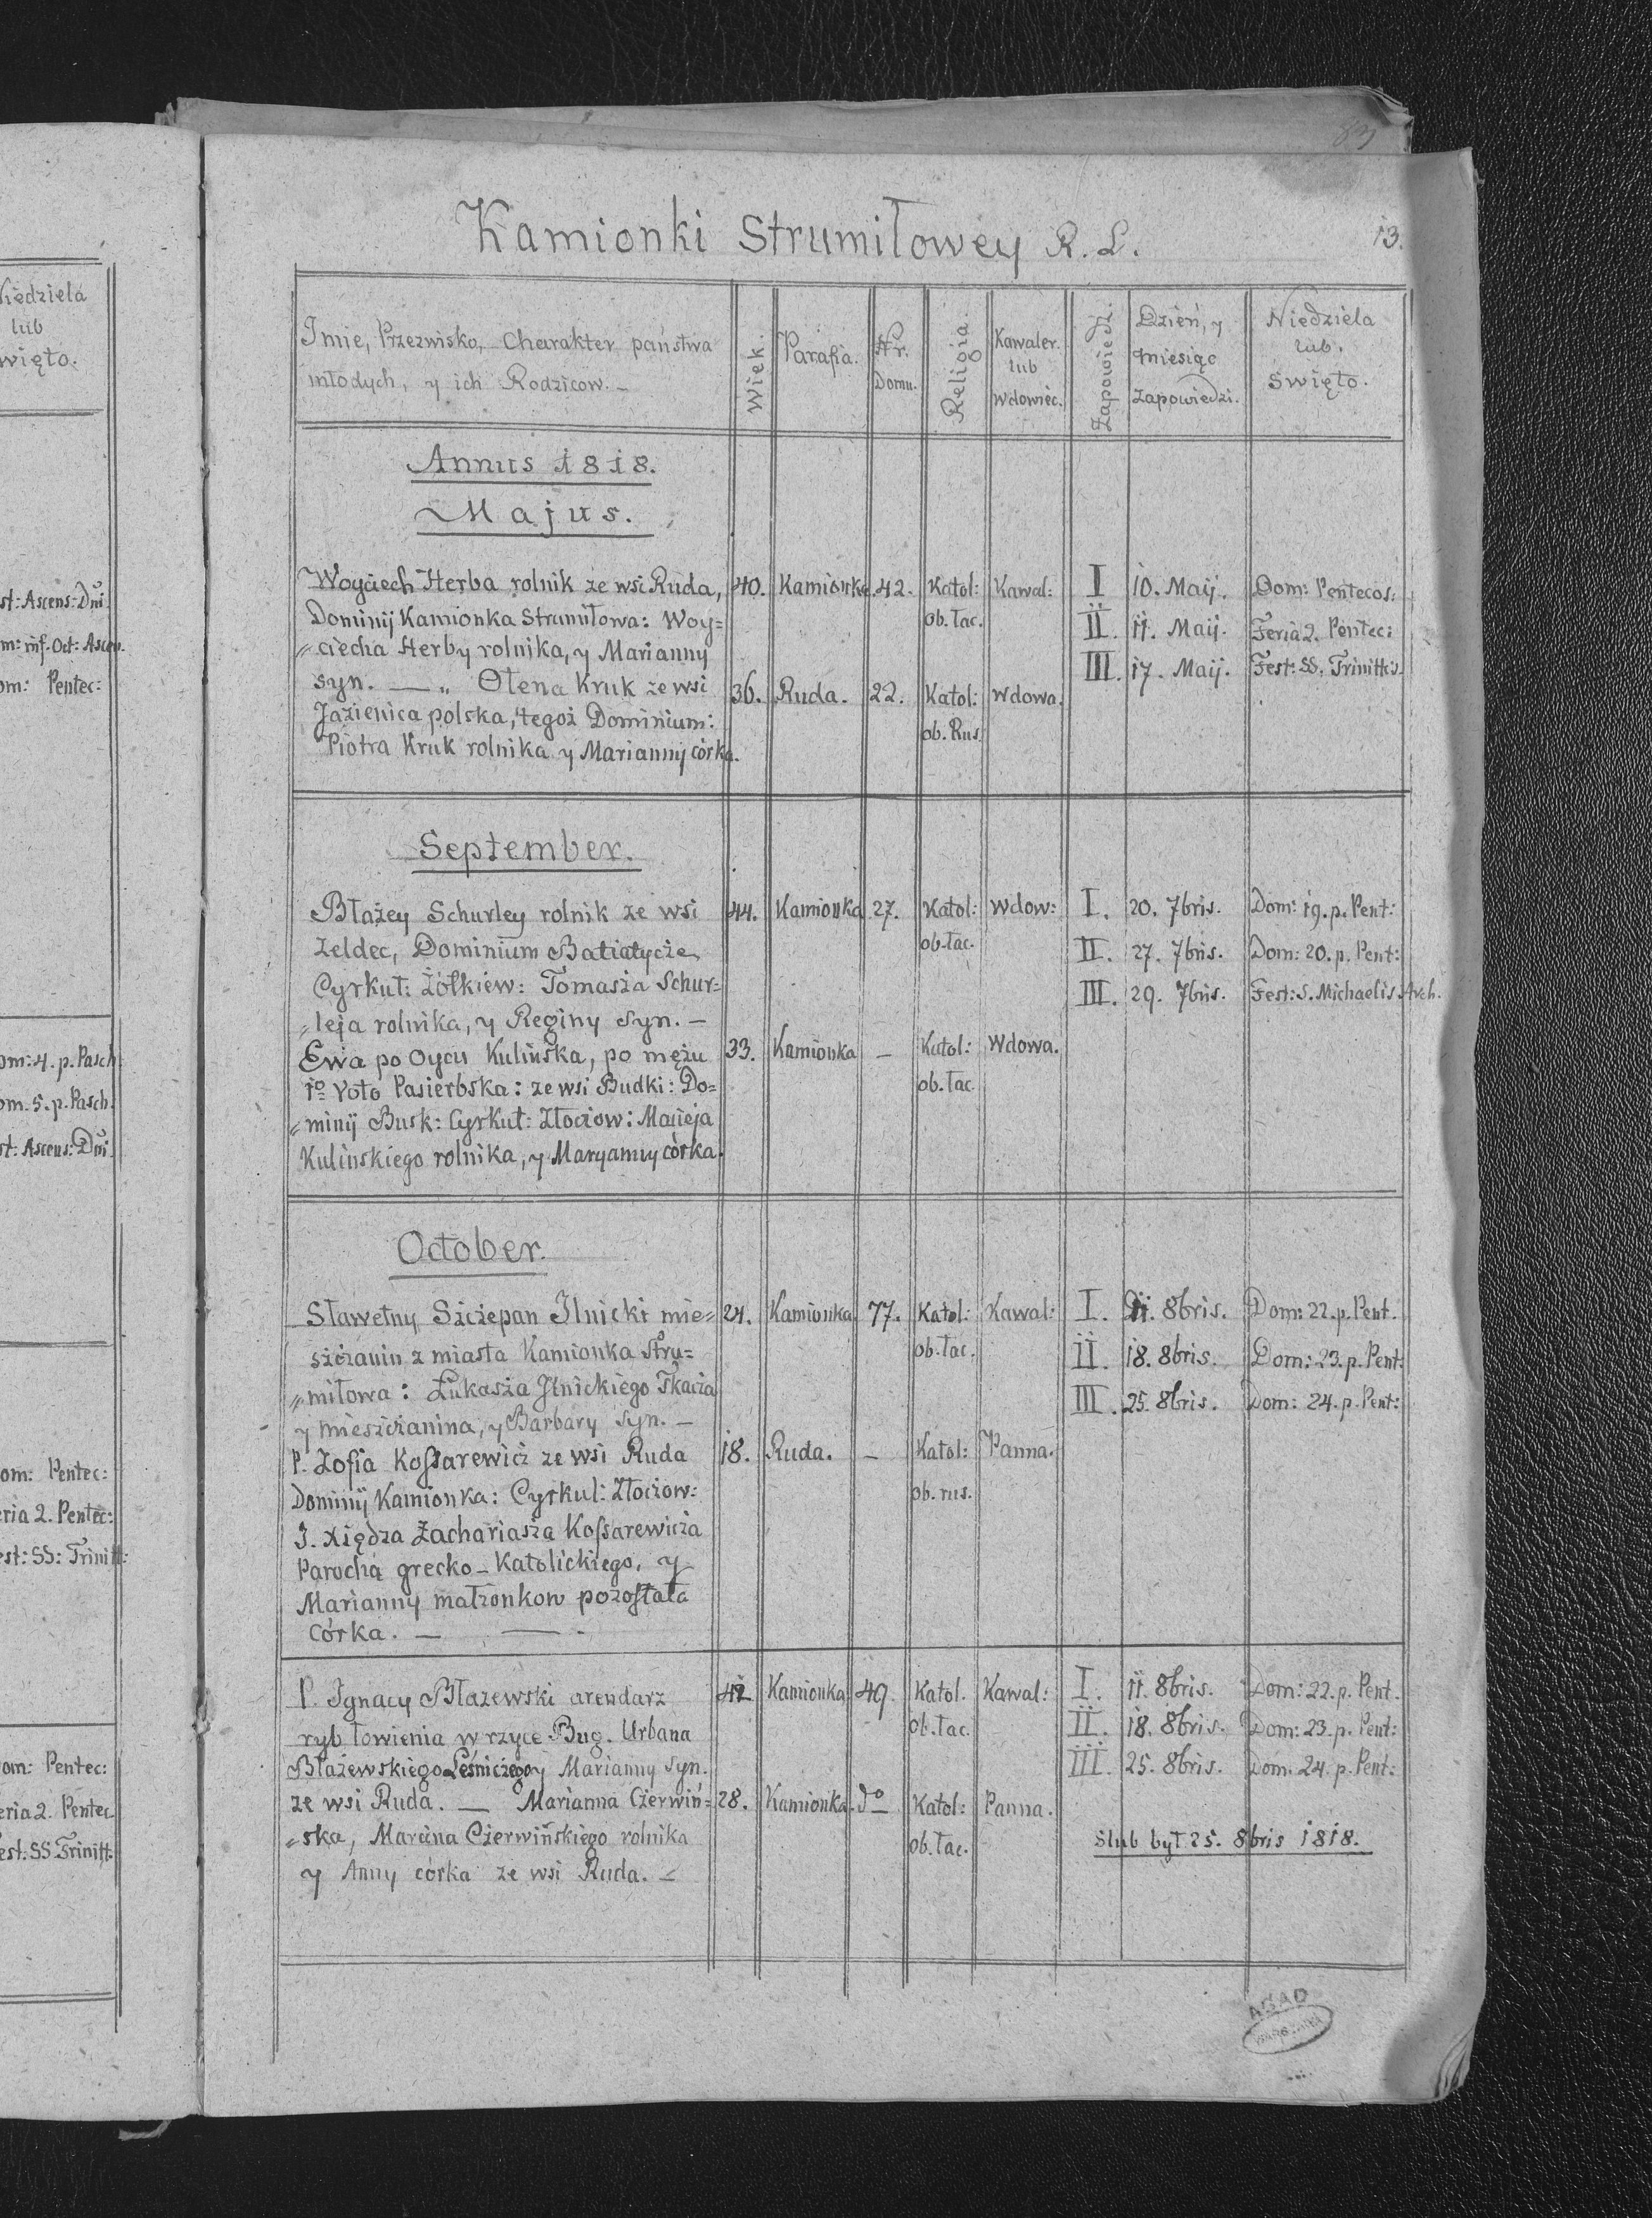 83
Kamionki Strumiłowey R. L.
13.
Niedziela
lub
więto.
st: Ascens: Dni
m: inf. Oct: Ascen.
om: Pentec:
om: 4. p. Pasch
om. 5. p. Pasch.
st: Ascens: Dni.
om: Pentec:
eria 2. Pentec:
est: SS: Trinitt:
om: Pentec:
eria 2. Pentec
est: SS Trinitt:
Imie, Przezwisko, Charakter państwa
młodych, y ich Rodzicow. —
Wiek.
Parafia.
Nr.
Domu.
Religia.
Kawaler.
lub
Wdowiec.
Zapowiedź.
Dzień, y
miesiąc
zapowiedzi.
Niedziela
lub.
święto.
Annus 1818.
Majus.
Woyciech Herba rolnik ze wsi Ruda, 40. Kamionka. 42. Katol: Kawal: I 10. Maij. Dom: Pentecos:
Dominij Kamionka Strumiłowa: Woy= ob. łac. II. 11. Maij. Feria 2. Pentec:
„ciecha Herby rolnika, y Marianny III. 17. Maij. Fest: SS. Trinitt:
syn. — „ Olena Kruk ze wsi 36. Ruda. 22. Katol: Wdowa.
Jazienica polska, tegoż Dominium: ob. Rus.
Piotra Kruk rolnika y Marianny córka.
September.
Błażey Schurley rolnik ze wsi 44. Kamionka 27. Katol: Wdow: I. 20. 7bris. Dom: 19. p. Pent:
Zeldec, Dominium Batiatycze ob. łac. II. 27. 7bris. Dom: 20. p. Pent:
Cyrkuł: Żółkiew: Tomasza Schur= III. 29. 7bris. Fest: S. Michaelis Arch.
„leja rolnika, y Reginy Syn. —
Ewa po Oycu Kulińska, po mężu 33. Kamionka — Katol: Wdowa.
1º Voto Pasierbska: ze wsi Budki: Do= ob. łac.
„minij Busk: Cyrkuł: Złoczow: Macieja
Kulinskiego rolnika, y Maryanny córka.
October.
Sławetny Szczepan Ilnicki mie= 24. Kamionka 77. Katol: Kawal: I. 11. 8bris. Dom: 22. p. Pent.
szczanin z miasta Kamionka Stru= ob. łac. II. 18. 8bris. Dom: 23. p. Pent:
„miłowa: Łukasza Ilnickiego Tkacza III. 25. 8bris. Dom: 24. p. Pent:
y mieszczanina, y Barbary syn. —
P. Zofia Koſsarewicz ze wsi Ruda 18. Ruda. — Katol: Panna.
Dominij Kamionka: Cyrkul: Złoczow: ob. rus.
J. Xiędza Zachariasza Koſsarewicza
Parocha grecko-Katolickiego, y
Marianny małżonkow pozoſtała
córka. — — .
P. Ignacy Błażewski arendarz 42 Kamionka 49. Katol. Kawal: I. 11. 8bris. Dom: 22. p. Pent.
ryb łowienia w rzyce Bug. Urbana ob. łac. II. 18. 8bris. Dom: 23. p. Pent:
Błażewskiego Leśniczego y Marianny syn. III. 25. 8bris. Dom. 24. p. Pent:
ze wsi Ruda. — Marianna Czerwiń= 28. Kamionka. dº Katol: Panna.
„ska, Marcina Czerwińskiego rolnika ob. łac. ślub był 25. 8bris 1818.
y Anny córka ze wsi Ruda. —
AGAD
WARSZAWA